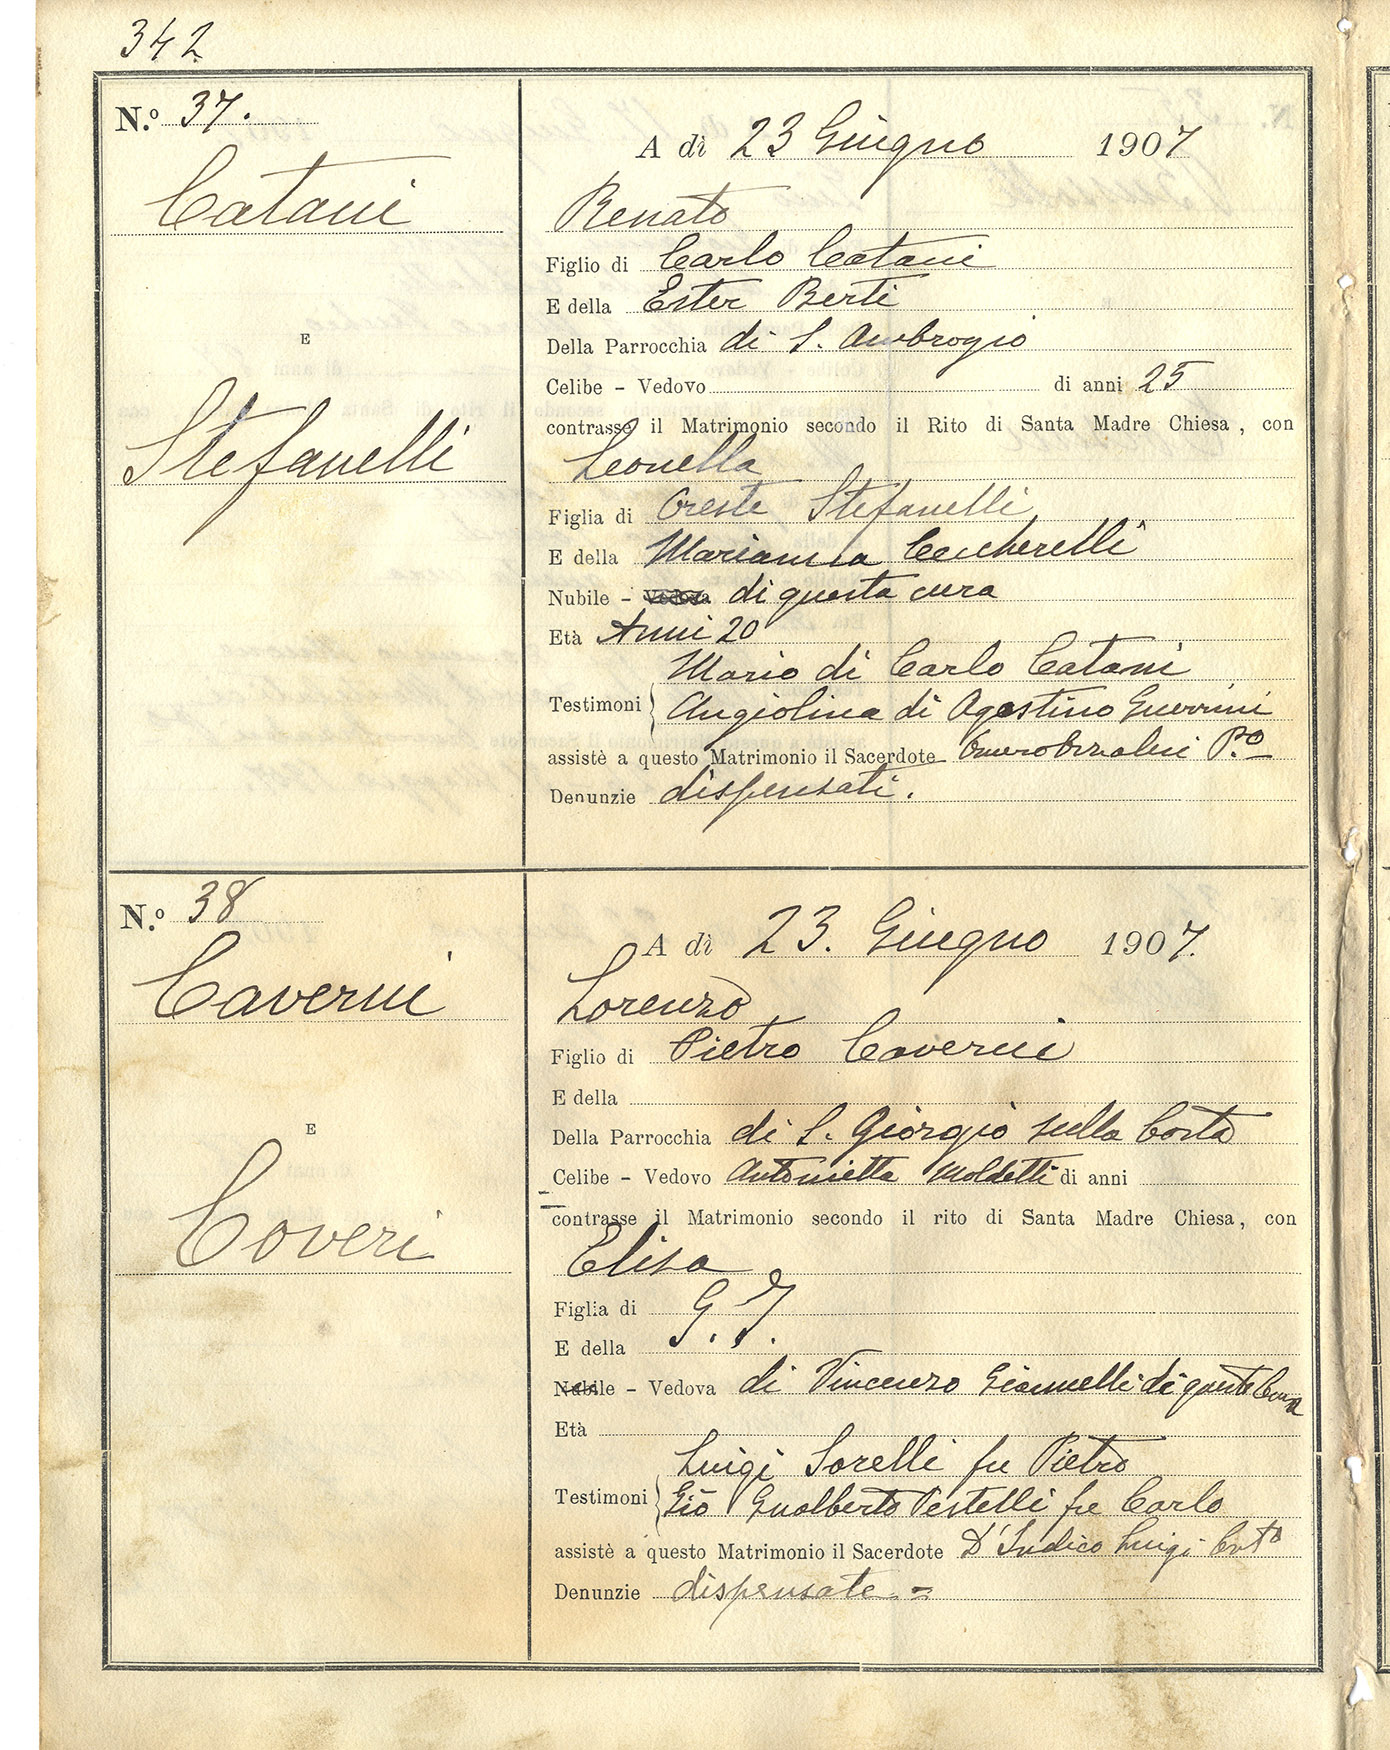 342
N.º 37.
Catani
E
Stefanelli
A dì 23 Giugno 1907
Renato
Figlio di Carlo Catani
E della Ester Berti
Della Parrocchia di S. Ambrogio
Celibe - Vedovo di anni 25
contrasse il Matrimonio secondo il Rito di Santa Madre Chiesa, con
Leonella
Figlia di Oreste Stefanelli
E della Marianna Ceccherelli
Nubile - Vedova di questa cura
Età Anni 20
Mario di Carlo Catani
Testimoni Angiolina di Agostino Guerrini
assistè a questo Matrimonio il Sacerdote P.º
Denunzie dispensati.
N.º 38
Caverni
E
Coveri
A dì 23. Giugno 1907.
Lorenzo
Figlio di Pietro Caverni
E della
Della Parrocchia di S. Giorgio sulla Costa
Celibe - Vedovo Antonietta Moldetti di anni
contrasse il Matrimonio secondo il rito di Santa Madre Chiesa, con
Elisa
Figlia di G. J.
E della
Nubile - Vedova di Vincenzo Giannelli di questa Cura
Età
Luigi Sorelli fu Pietro
Testimoni Gio Gualberto Pestelli fu Carlo
assistè a questo Matrimonio il Sacerdote D'Indico Luigi
Denunzie dispensate =